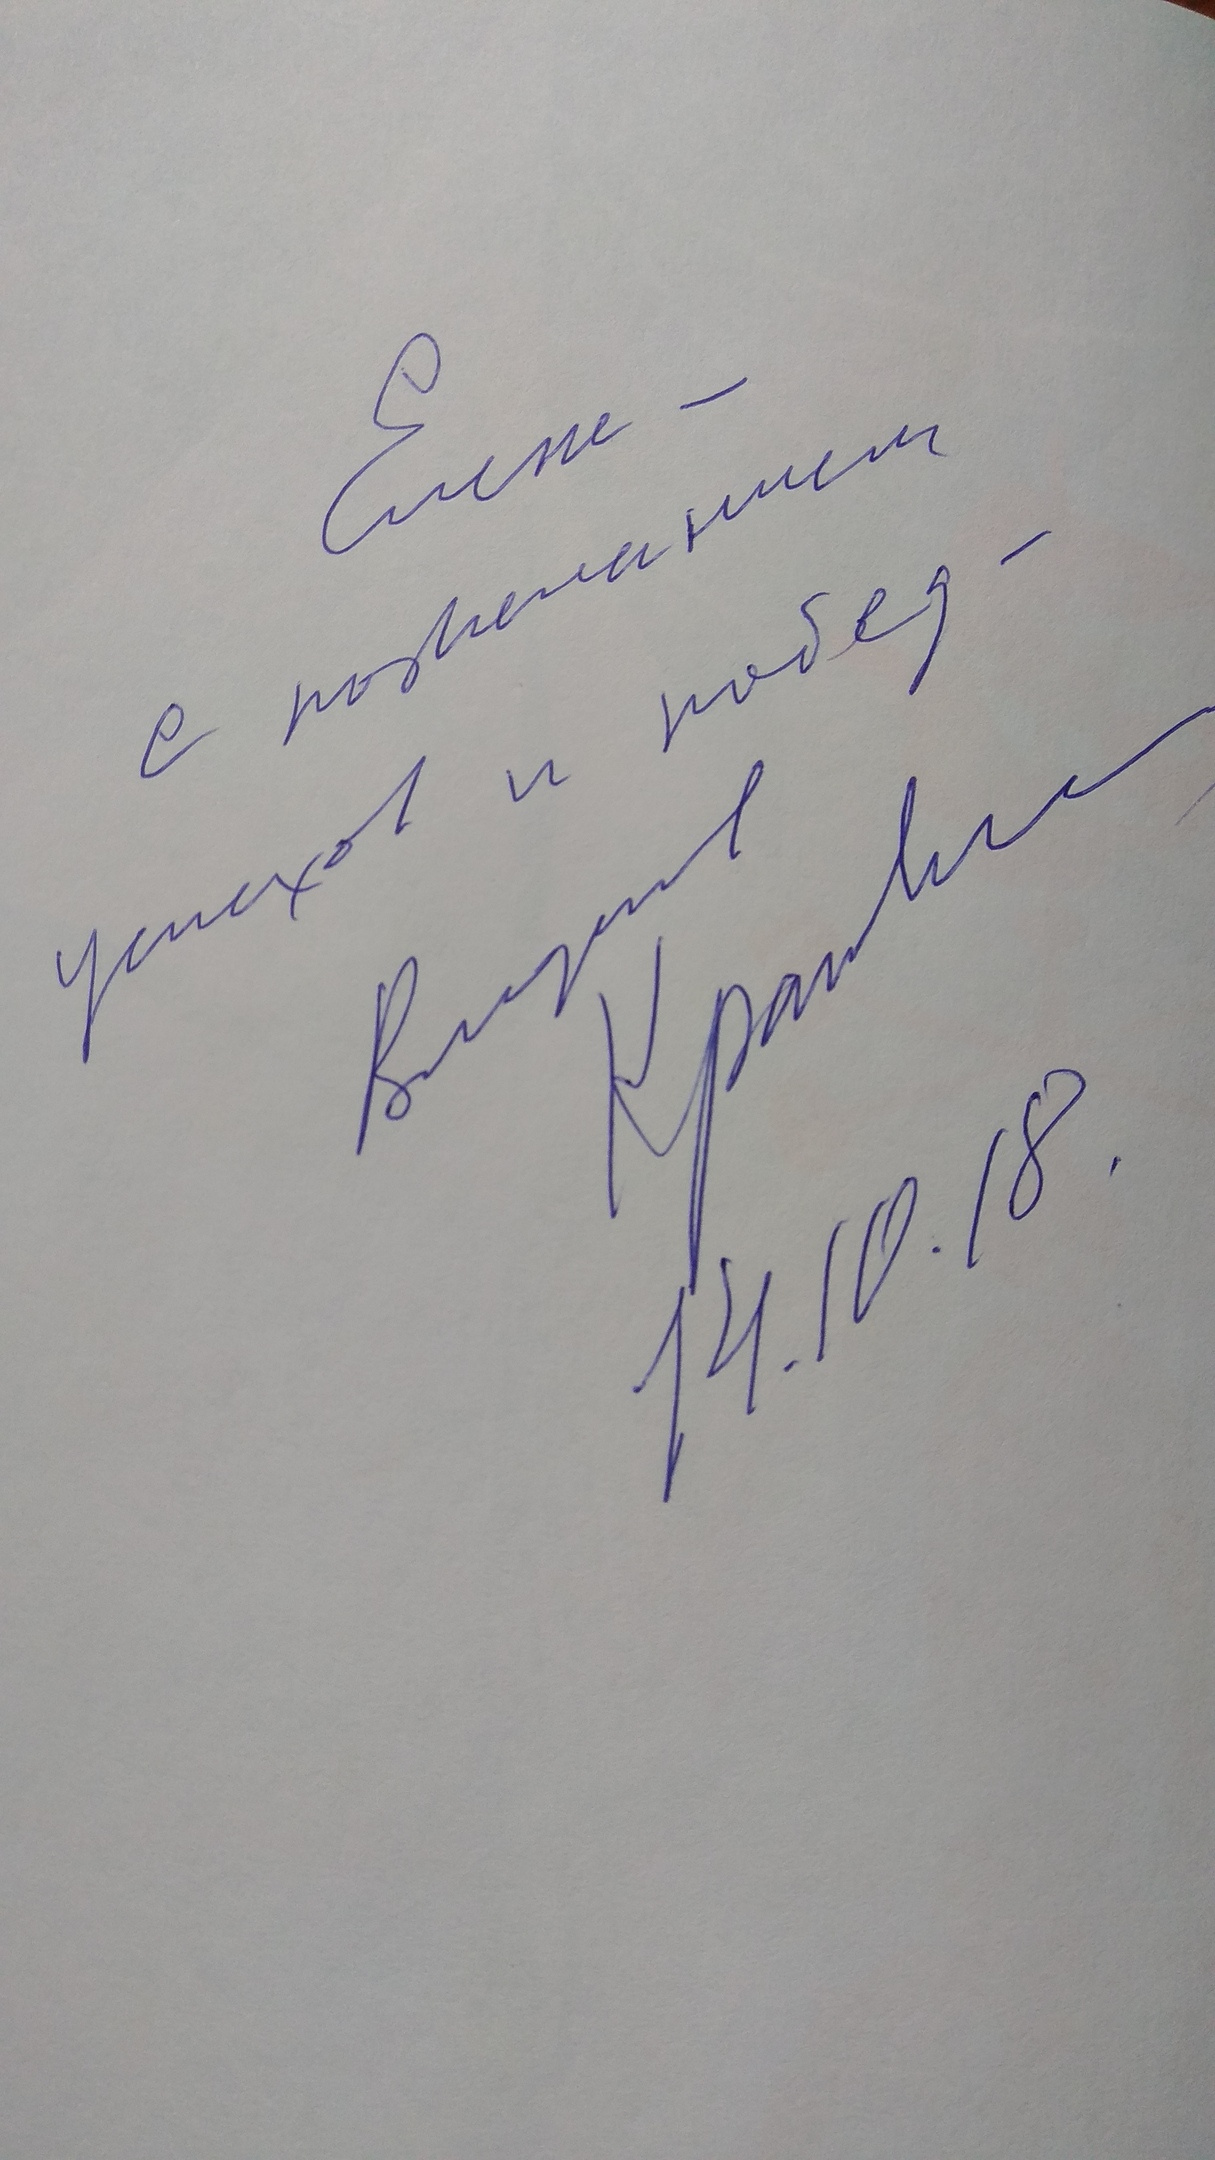 Елене –
с пожеланием
успехов и побед –
Владислав
14.10.18.